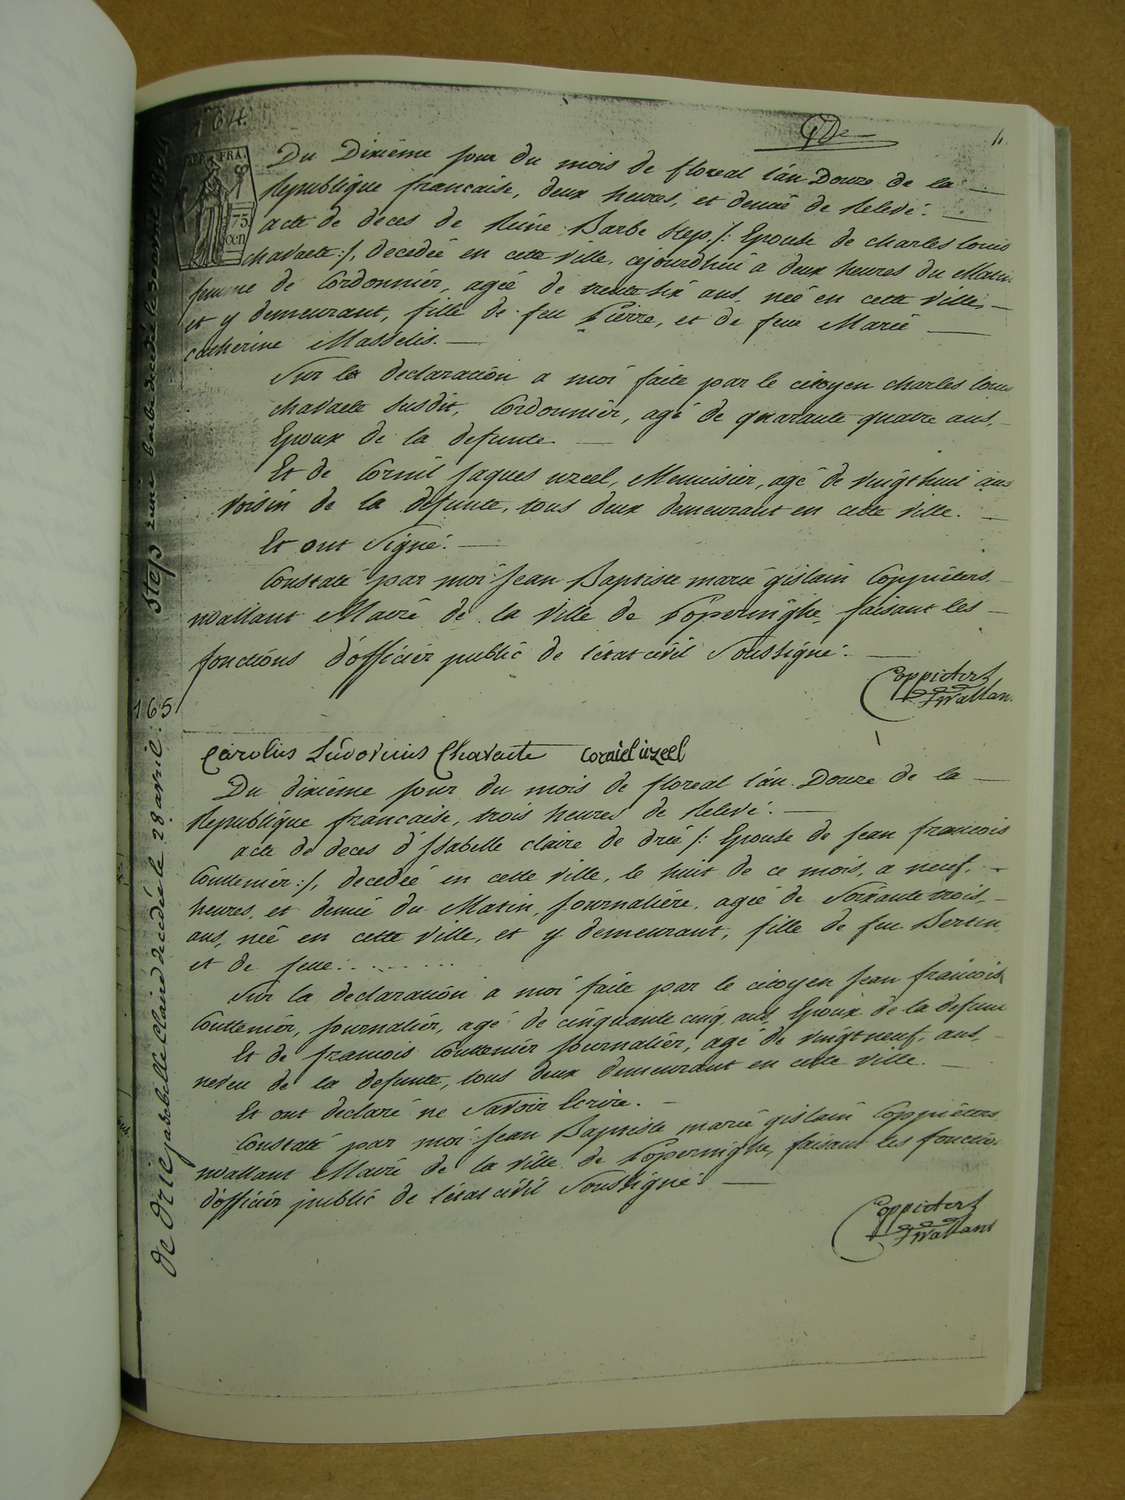 164.
4.
REP. FRA.
75
cen
Du Dixiéme jour du mois de floreal l'an Douze de la
Republique francaise, deux heures, et demie de Relevé.
acte de deces de Reine Barbe Step /: Epouse de charles louis
chavaete :/, decedée en cette ville, cejourdhui a deux heures du Matin
femme de Cordonnier, agée de trente six ans, née en cette ville,
et y demeurant, fille de feu Pierre, et de feue Marie
catherine Masselis.
Sur la declaration a moi faite par le citoyen charles louis
chavaete susdit, Cordonnier, agé de quarante quatre ans,
Epoux de la defunte.
Et de Cornil Jaques uzeel, Menuisier, agé de vingt huit ans
voisin de la defunte, tous deux demeurant en cette ville.
Et ont Signé.
Constaté par moi Jean Baptiste marie gislain Coppieters
wallant Maire de la ville de Poperinghe, faisant les
fonctions d'officier public de l'état civil Soussigné.
Coppieters
Wallan
Carolus Ludovicus Chavaete Corniel uzeel
165
Du dixiéme jour du mois de floreal l'an Douze de la
Republique francaise, trois heures de Relevé.
acte de deces d'Isabelle claire de drie /: Epouse de Jean francois
Couttenier :/, decedée en cette ville, le huit de ce mois, a neuf,
heures, et demie du Matin, journaliére, agée de Soixante trois,
ans, née en cette ville, et y demeurant, fille de feu Bertin
et de feue: . . . . . . .
Sur la declaration a moi faite par le citoyen Jean francois
Couttenier, journalier, agé de cinquante cinq ans, Epoux de la defunte
Et de francois Couttenier journalier, agé de vingt neuf, ans,
neveu de la defunte, tous deux demeurant en cette ville.
Et ont declaré ne Savoir Ecrire.
Constaté par moi Jean Baptiste marie gislain Coppieters
wallant Maire de la ville de Poperinghe, faisant les fonctions
d'officier public de l'état civil Soussigné.
Coppieters
Wallant
Step reine barbe decedé le
de Drie isabelle Claire decedée le 28 avril.